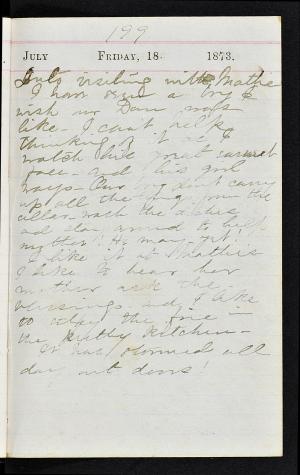 199
JULY FRIDAY, 18. 1873.
visiling with Mattie
I have a boy I
wish our Dan was
like - I can't help
thinking of it as I
watch his great earnest
face - and his girl
ways - Our boy don't carry
up all the from the
cellar - wash the dishes
and stay around to help
mother! He may - yet!
I like it at Mattie's
I like to hear her
mother ask the
blessings and I like
to stay the fire in
the pretty kitchen -
It has stormed all
day out doors!